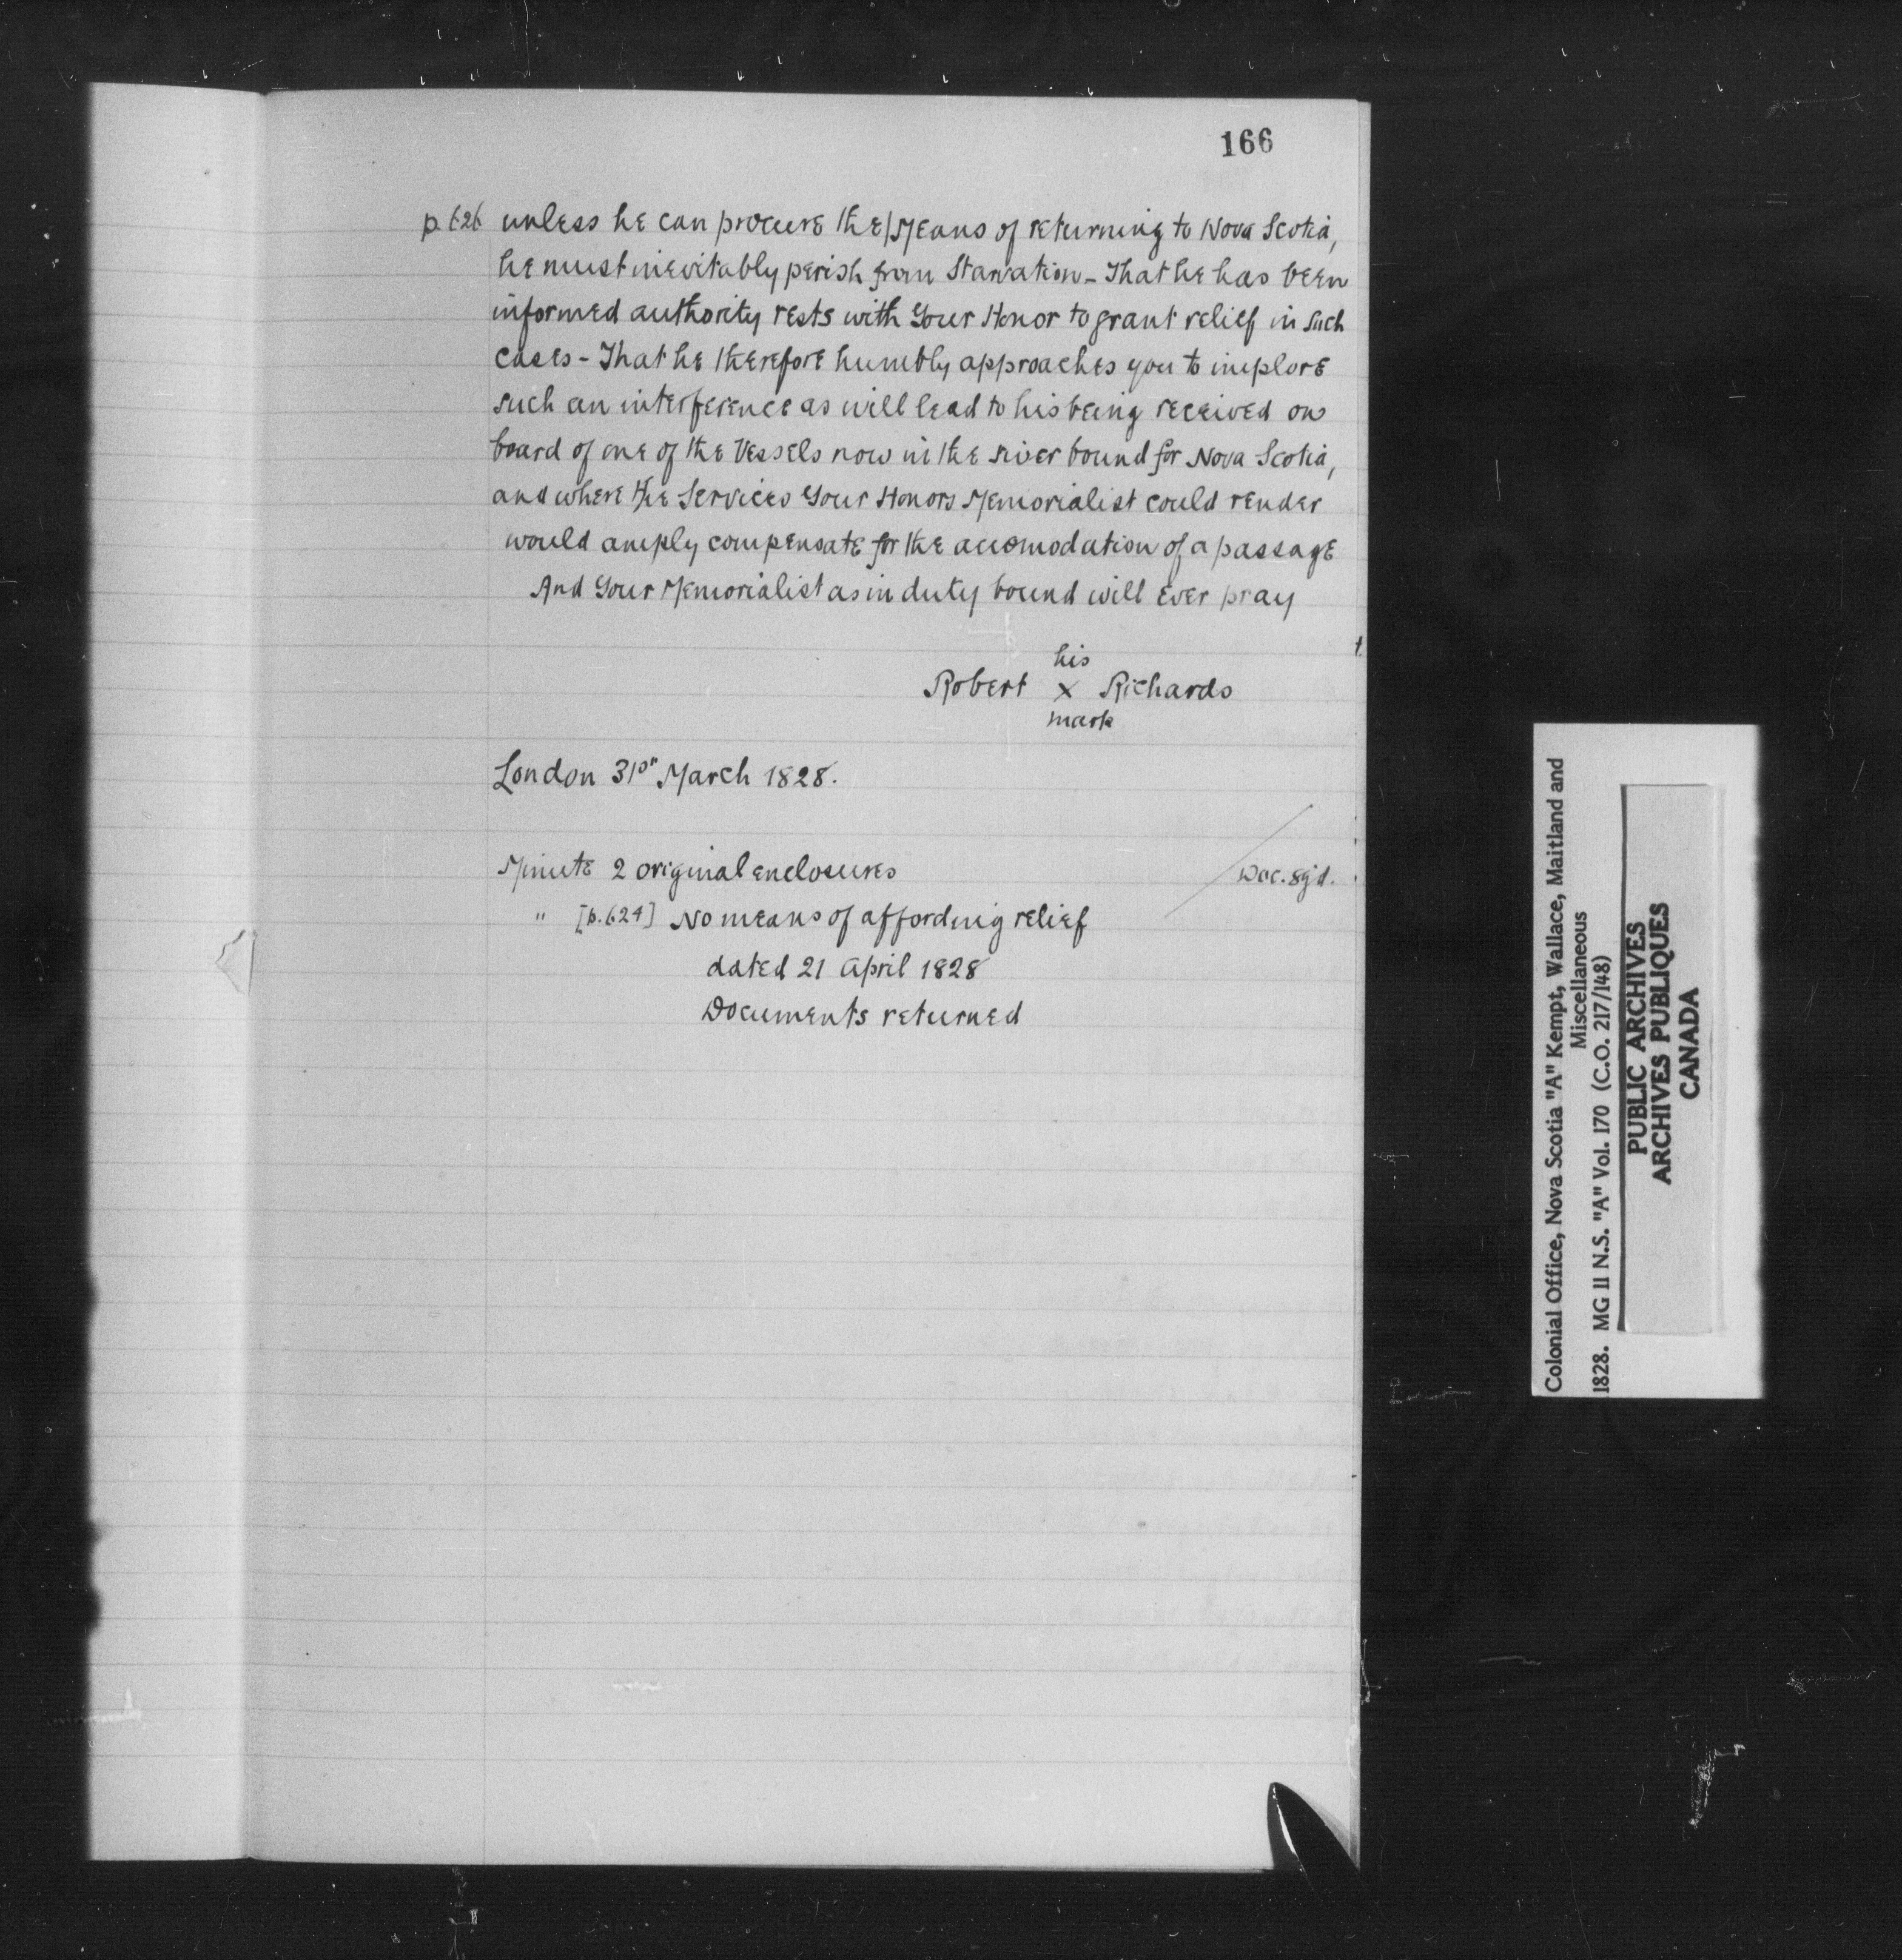 166
p. 626 unless he can procure the/Means of returning to Nova Scotia,
he must inevitably perish from Starvation - That he has been
informed authority rests with Your Honor to grant relief in such
cases - That he therefore humbly approaches you to implore
such an interference as will lead to his being received on
board of one of the Vessels now in the river bound for Nova Scotia,
and where the Services Your Honors Memorialist could render
would amply compensate for the accomodation of a passage
And Your Memorialist as in duty bound will Ever pray
his
Robert x Richards
mark
London 31st March 1828.
Minute 2 original enclosures
Doc. sg'd.
" [p. 624] No means of affording relief
dated 21 April 1828
Documents returned
Colonial Office, Nova Scotia "A" Kempt, Wallace, Maitland and
Miscellaneous
1828. MG 11 N.S. "A" Vol. 170 (C.O. 217/148)
PUBLIC ARCHIVES
ARCHIVES PUBLIQUES
CANADA